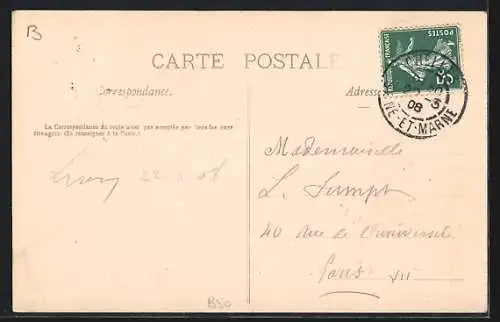 B
CARTE POSTALE
Correspondance.
Adresse
La Correspondance du recto n'est pas acceptée par tous les pays
étrangers (Se renseigner à la Poste).
POSTES
FRANÇAISE
08
NE-ET-MARNE
22 08
Mademoiselle
L.
40 rue de l'université
Paris VII
B50